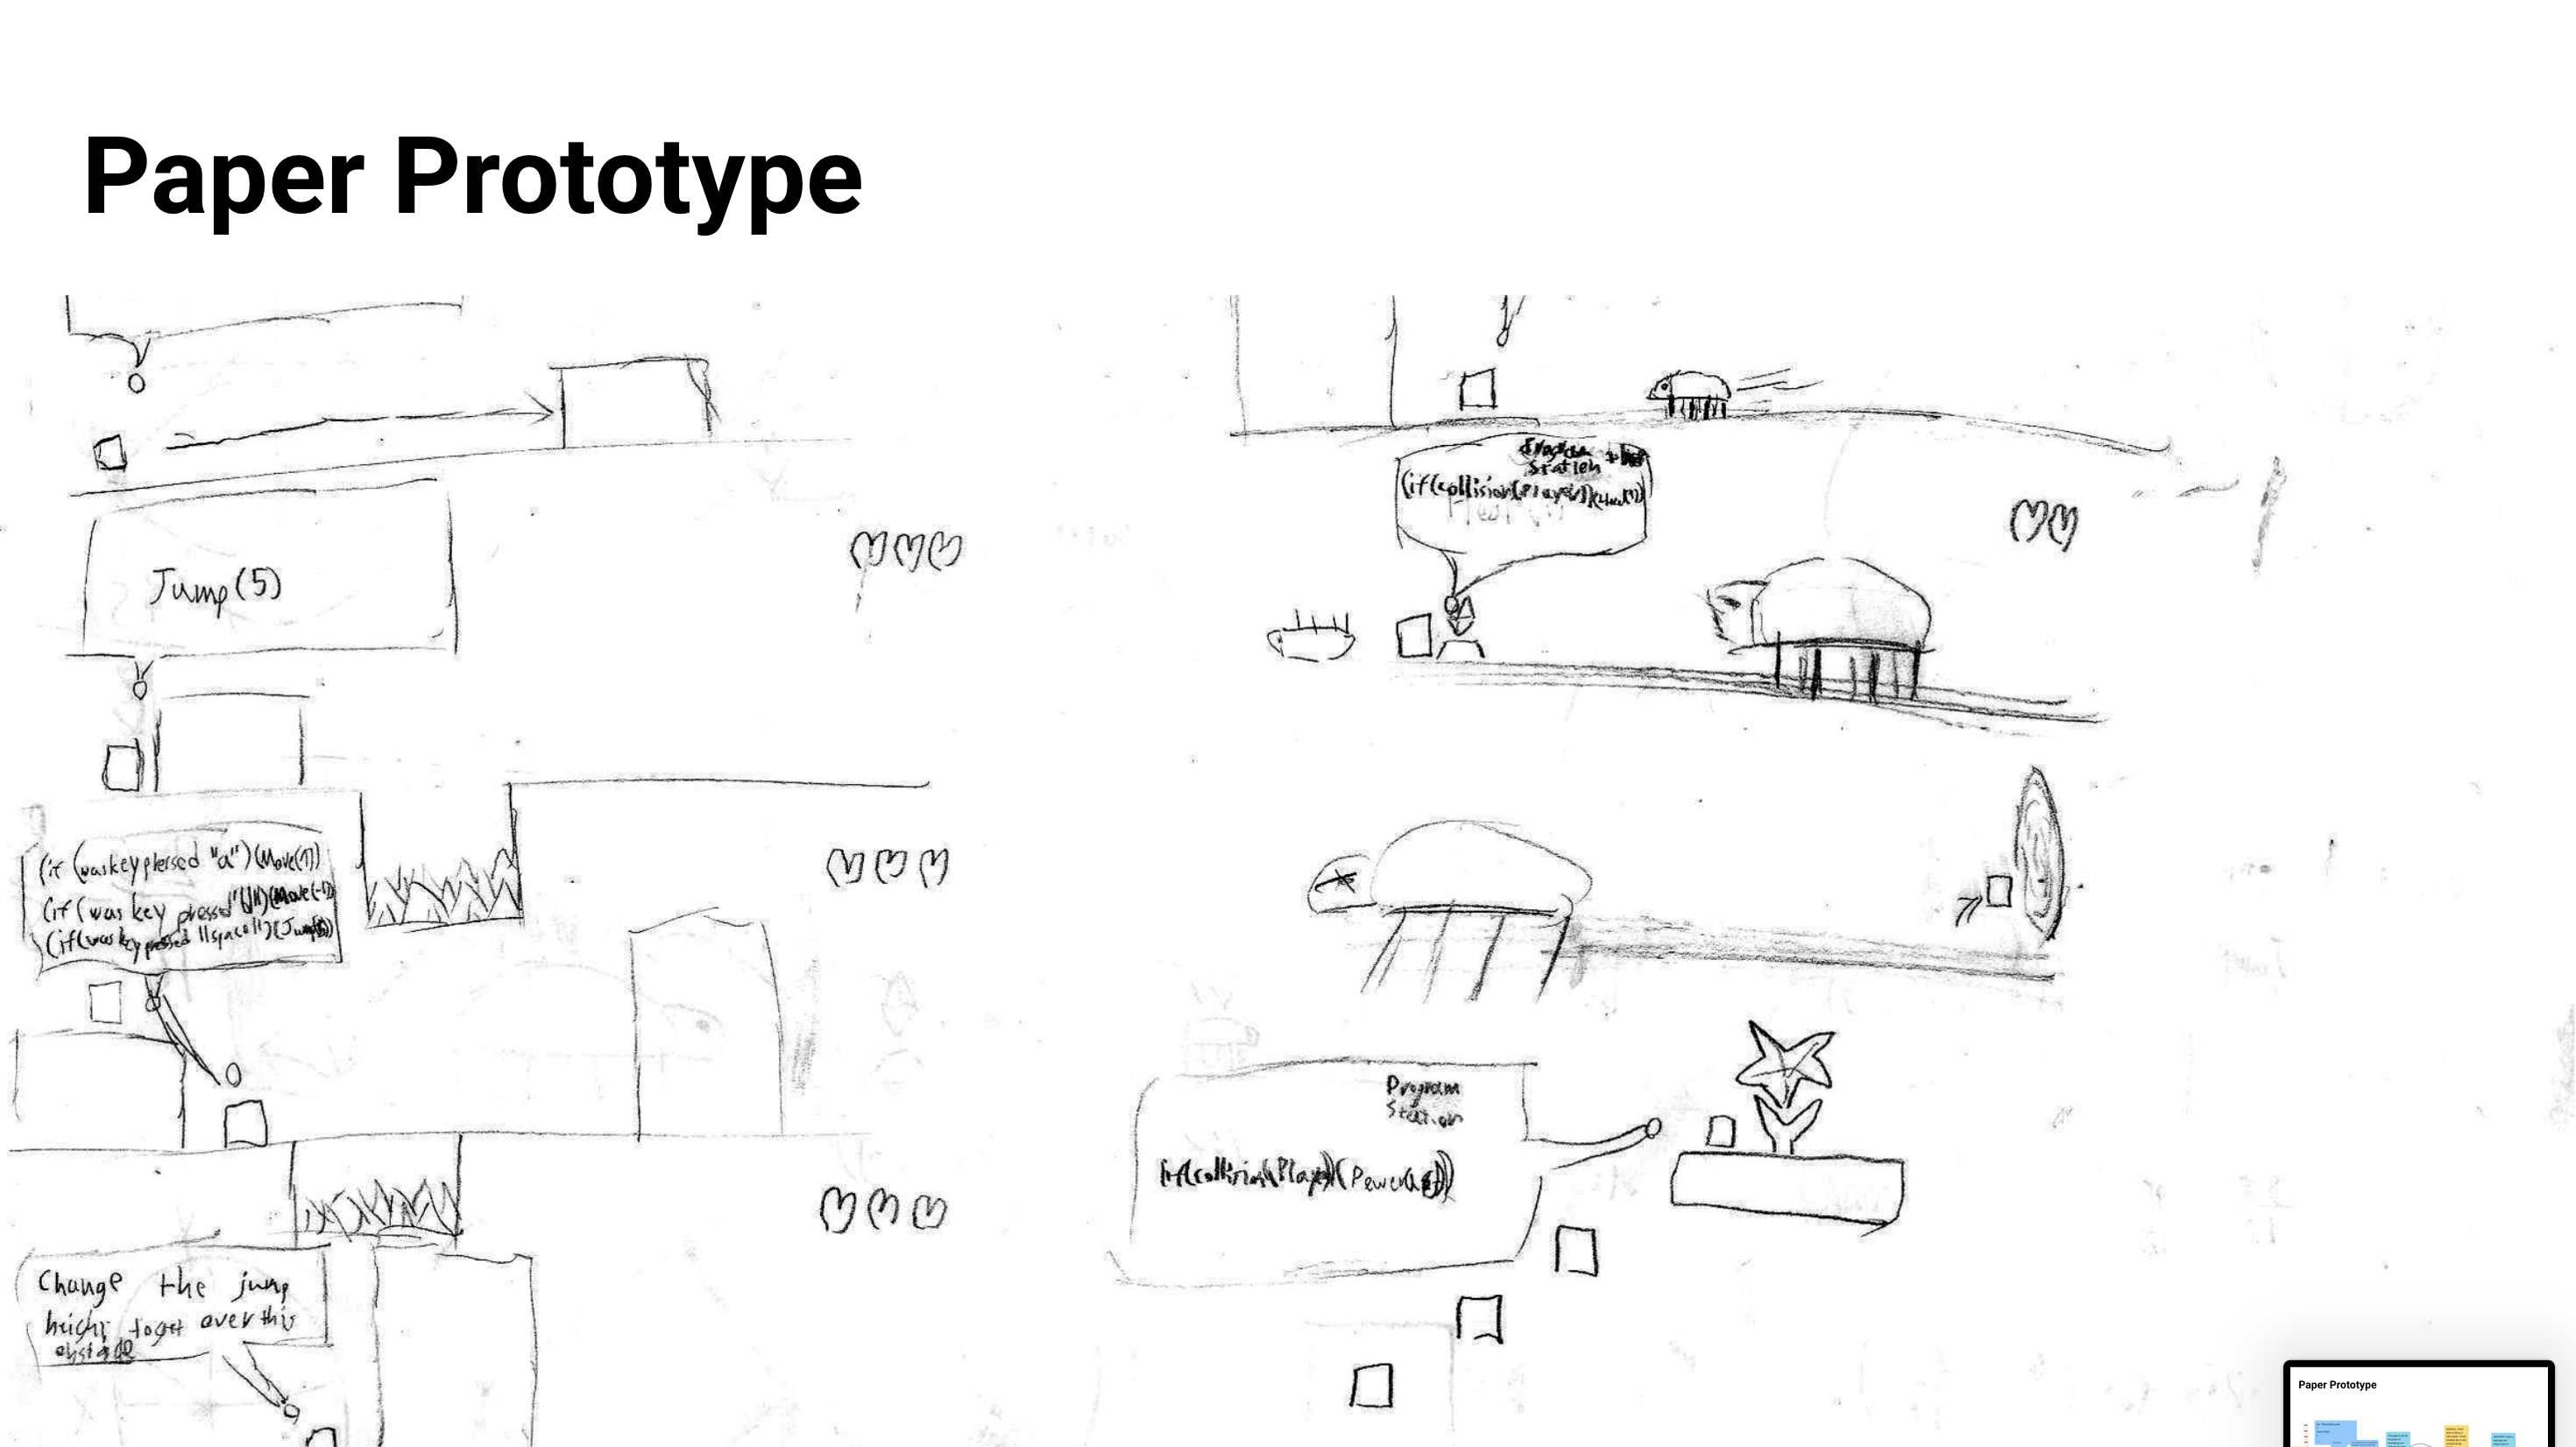 Paper Prototype
Jump(5)
(if (was key pressed "a") (Move(1))
(if (was key pressed (Move(-1))
(if (was key pressed "space") (Jump
Change the jump
height to get over this
obstacle
Station
(if(collision(Player)
Program
Station
if(collision(Player)(Power
Paper Prototype